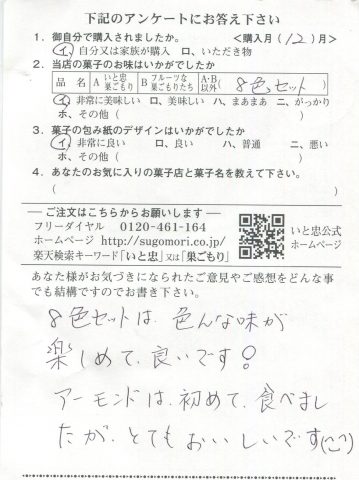 下記のアンケートにお答え下さい
1. 御自分で購入されましたか。 <購入月(12)月>
イ、自分又は家族が購入 ロ、いただき物
2. 当店の菓子のお味はいかがでしたか
品名 A いと忠巣ごもり B フルーツな巣ごもりたち A・B以外 (8色セット)
イ、非常に美味しい ロ、美味しい ハ、まあまあ ニ、がっかり
ホ、その他(
3. 菓子の包み紙のデザインはいかがでしたか
イ、非常に良い ロ、良い ハ、普通 ニ、悪い
ホ、その他(
4. あなたのお気に入りの菓子店と菓子名を教えて下さい。
( )
ご注文はこちらからお願いします
フリーダイヤル 0120-461-164
ホームページ http://sugomori.co.jp/
楽天検索キーワード「いと忠」又は「巣ごもり」
いと忠公式
ホームページ
あなた様がお気づきになられたご意見やご感想をどんな事
でも結構ですのでお書き下さい。
8色セットは、色んな味が
楽しめて、良いです!
アーモンドは、初めて、食べまし
たが、とてもおいしいです(^^)